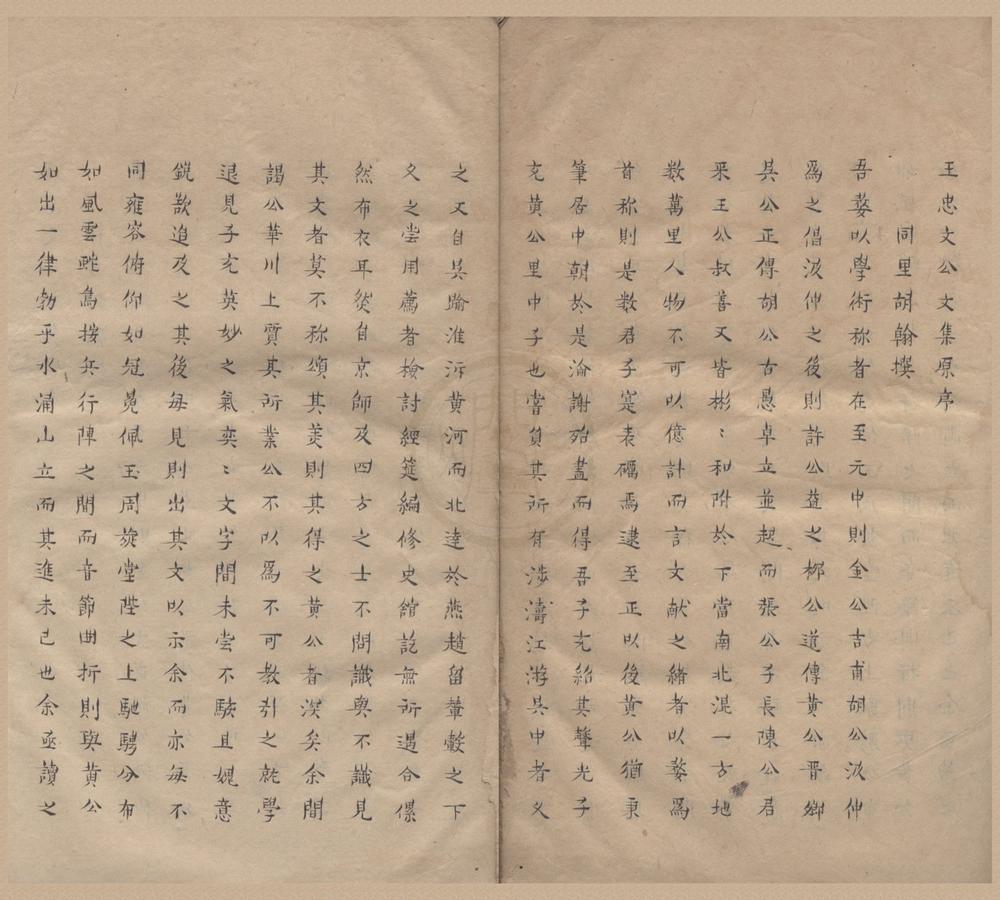 王忠文公文集原序
同里胡翰撰
吾婺以學術称者在至元中則金公吉甫胡公汲仲
爲之倡汲仲之後則許公益之栁公道傳黄公晋卿
吳公正傳胡公古愚卓立並起而張公子長陳公君
采王公叔善又皆彬〻和附於下當南北混一方地
数萬里人物不可以億計而言文献之緒者以婺爲
首称則是数君子寔表礪焉逮至正以後黄公猶秉
筆居中朝於是淪謝殆盡而得吾子充紹其聲光子
充黄公里中子也嘗負其所有涉濤江游吳中者久
之又自吳踰淮沂黄河而北達於燕趙留輦轂之下
久之尝用薦者檢討經筵編修史舘訖無所遇合儽
然布衣耳然自京師及四方之士不問識與不識見
其文者莫不称頌其美則其得之黄公者深矣余間
謁公華川上質其所業公不以爲不可教引之就學
退見子充英妙之氣奕〻文字間未尝不駭且媿意
鋭欲追及之其後每見則出其文以示余而亦每不
同雍容俯仰如冠冕佩玉周旋堂陛之上馳騁分布
如風雲蛇鳥按兵行陣之間而音節曲折則與黄公
如出一律勃乎水涌山立而其進未已也余亟讀之